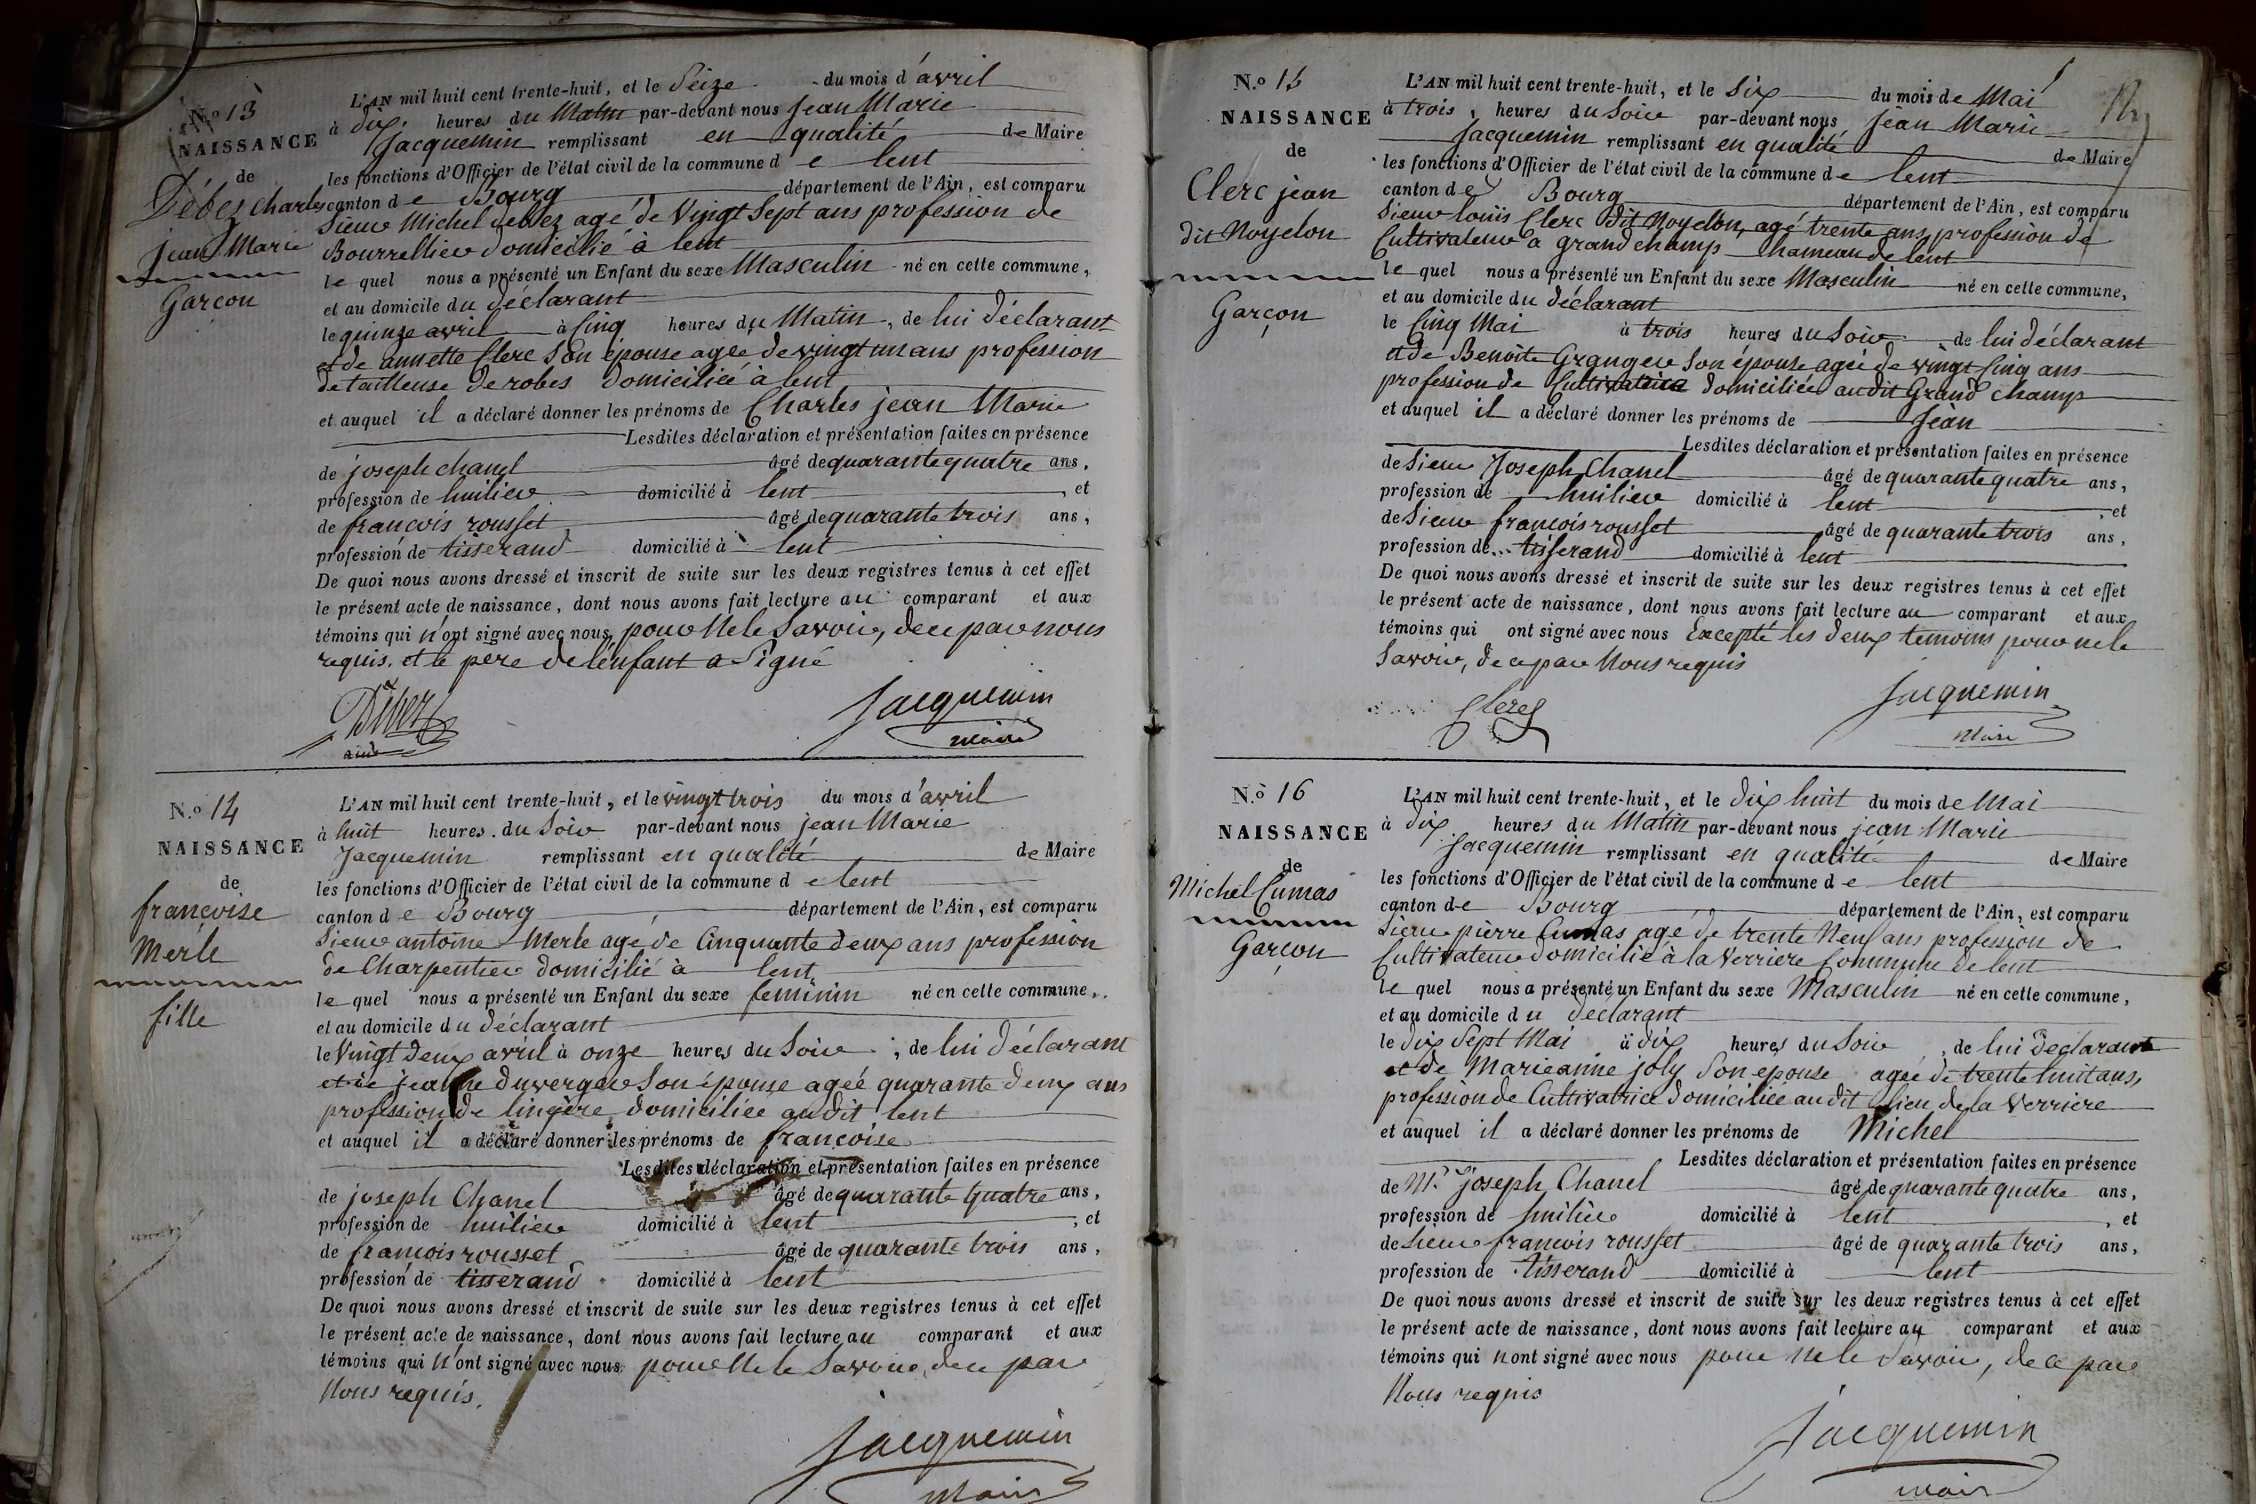 N.º 13
NAISSANCE
de
Débez charles
jean Marie
Garçon
L'AN mil huit cent trente-huit, et le Seize du mois d'avril
à dix heures du Matin par-devant nous Jean Marie
Jacquemin remplissant en qualité de Maire
les fonctions d'Officier de l'état civil de la commune de lent
canton de Bourg département de l'Ain, est comparu
Sieur Michel debez agé de Vingt Sept ans profession de
Bourrellier domicilié à lent
le quel nous a présenté un Enfant du sexe Masculin né en cette commune,
et au domicile du déclarant
le quinze avril à Cinq heures du Matin, de lui déclarant
et de annette Clerc Son épouse agée de vingt un ans profession
de tailleuse de robes domiciliée à lent
et auquel il a déclaré donner les prénoms de Charles jean Marie
Lesdites déclaration et présentation faites en présence
de joseph chanel âgé de quarante quatre ans,
profession de huilier domicilié à lent, et
de francois rousset âgé de quarante trois ans,
profession de tisserand domicilié à lent
De quoi nous avons dressé et inscrit de suite sur les deux registres tenus à cet effet
le présent acte de naissance, dont nous avons fait lecture au comparant et aux
témoins qui n'ont signé avec nous pour Ne le Savoir, de ce par nous
requis. et le pere de l'enfant a Signé
Débez
Jacquemin
maire
N.º 14
NAISSANCE
de
francoise
Merle
fille
L'AN mil huit cent trente-huit, et le vingt trois du mois d'avril
à huit heures du Soir par-devant nous jean Marie
Jacquemin remplissant en qualité de Maire
les fonctions d'Officier de l'état civil de la commune de lent
canton de Bourg département de l'Ain, est comparu
Sieur antoine Merle agé de Cinquante deux ans profession
de Charpentier domicilié à lent
le quel nous a présenté un Enfant du sexe feminin né en cette commune,
et au domicile du déclarant
le Vingt Deux avril à onze heures du Soir, de lui déclarant
et de jeanne duverger Son épouse agée quarante deux ans
profession de lingère domiciliée audit lent
et auquel il a déclaré donner les prénoms de francoise
Lesdites déclaration et présentation faites en présence
de joseph Chanel âgé de quarante quatre ans,
profession de huilier domicilié à lent, et
de francois rousset âgé de quarante trois ans,
profession de tisserand domicilié à lent
De quoi nous avons dressé et inscrit de suite sur les deux registres tenus à cet effet
le présent acte de naissance, dont nous avons fait lecture au comparant et aux
témoins qui n'ont signé avec nous pour Ne le Savoir, de ce par
Nous requis.
Jacquemin
Maire
N.º 15
NAISSANCE
de
Clerc jean
dit Noyelon
Garçon
L'AN mil huit cent trente-huit, et le Six du mois de Mai
à trois heures du Soir par-devant nous Jean Marie
Jacquemin remplissant en qualité de Maire
les fonctions d'Officier de l'état civil de la commune de lent
canton de Bourg département de l'Ain, est comparu
Sieur louis Clerc dit Noyelon, agé trente ans, profession de
Cultivateur a grand champ hameau de lent
le quel nous a présenté un Enfant du sexe Masculin né en cette commune,
et au domicile du déclarant
le Cinq Mai à trois heures du Soir de lui déclarant
et de Benoite Granger Son épouse agée de vingt Cinq ans
profession de Cultivatrice domiciliée audit Grand Champ
et auquel il a déclaré donner les prénoms de Jean
Lesdites déclaration et présentation faites en présence
de Sieur Joseph Chanel âgé de quarante quatre ans,
profession de huilier domicilié à lent, et
de Sieur francois rousset âgé de quarante trois ans,
profession de tisserand domicilié à lent
De quoi nous avons dressé et inscrit de suite sur les deux registres tenus à cet effet
le présent acte de naissance, dont nous avons fait lecture au comparant et aux
témoins qui ont signé avec nous Excepté les deux temoins pour ne le
Savoir, de ce par Nous requis
Clerc
Jacquemin
Maire
N.º 16
NAISSANCE
de
Michel Cumas
Garçon
L'AN mil huit cent trente-huit, et le dix huit du mois de Mai
à dix heures du Matin par-devant nous jean Marie
Jacquemin remplissant en qualité de Maire
les fonctions d'Officier de l'état civil de la commune de lent
canton de Bourg département de l'Ain, est comparu
Sieur pierre Cumas agé de trente Neuf ans profession de
Cultivateur domicilié à la Verriere Commune de lent
le quel nous a présenté un Enfant du sexe Masculin né en cette commune,
et au domicile du déclarant
le dix Sept Mai à dix heures du Soir, de lui Déclarant
et de Marieanne joly Son epouse agée de trente huit ans,
profession de Cultivatrice domiciliée audit lieu de la Verriere
et auquel il a déclaré donner les prénoms de Michel
Lesdites déclaration et présentation faites en présence
de Mr joseph Chanel âgé de quarante quatre ans,
profession de huilier domicilié à lent, et
de Sieur francois rousset âgé de quarante trois ans,
profession de tisserand domicilié à lent
De quoi nous avons dressé et inscrit de suite sur les deux registres tenus à cet effet
le présent acte de naissance, dont nous avons fait lecture au comparant et aux
témoins qui n'ont signé avec nous pour Ne le Savoir, de ce par
Nous requis
Jacquemin
maire